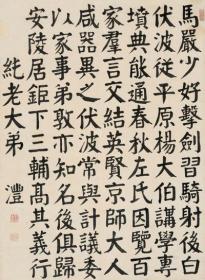 馬嚴少好擊劍習騎射後白
伏波從平原楊大伯講學專
墳典能通春秋左氏因覽百
家群言交結英賢京師大人
咸器異之伏波常與計議委
以家事弟敦亦知名後俱歸
安陵居鉅下三輔高其義行
純老大弟 灃